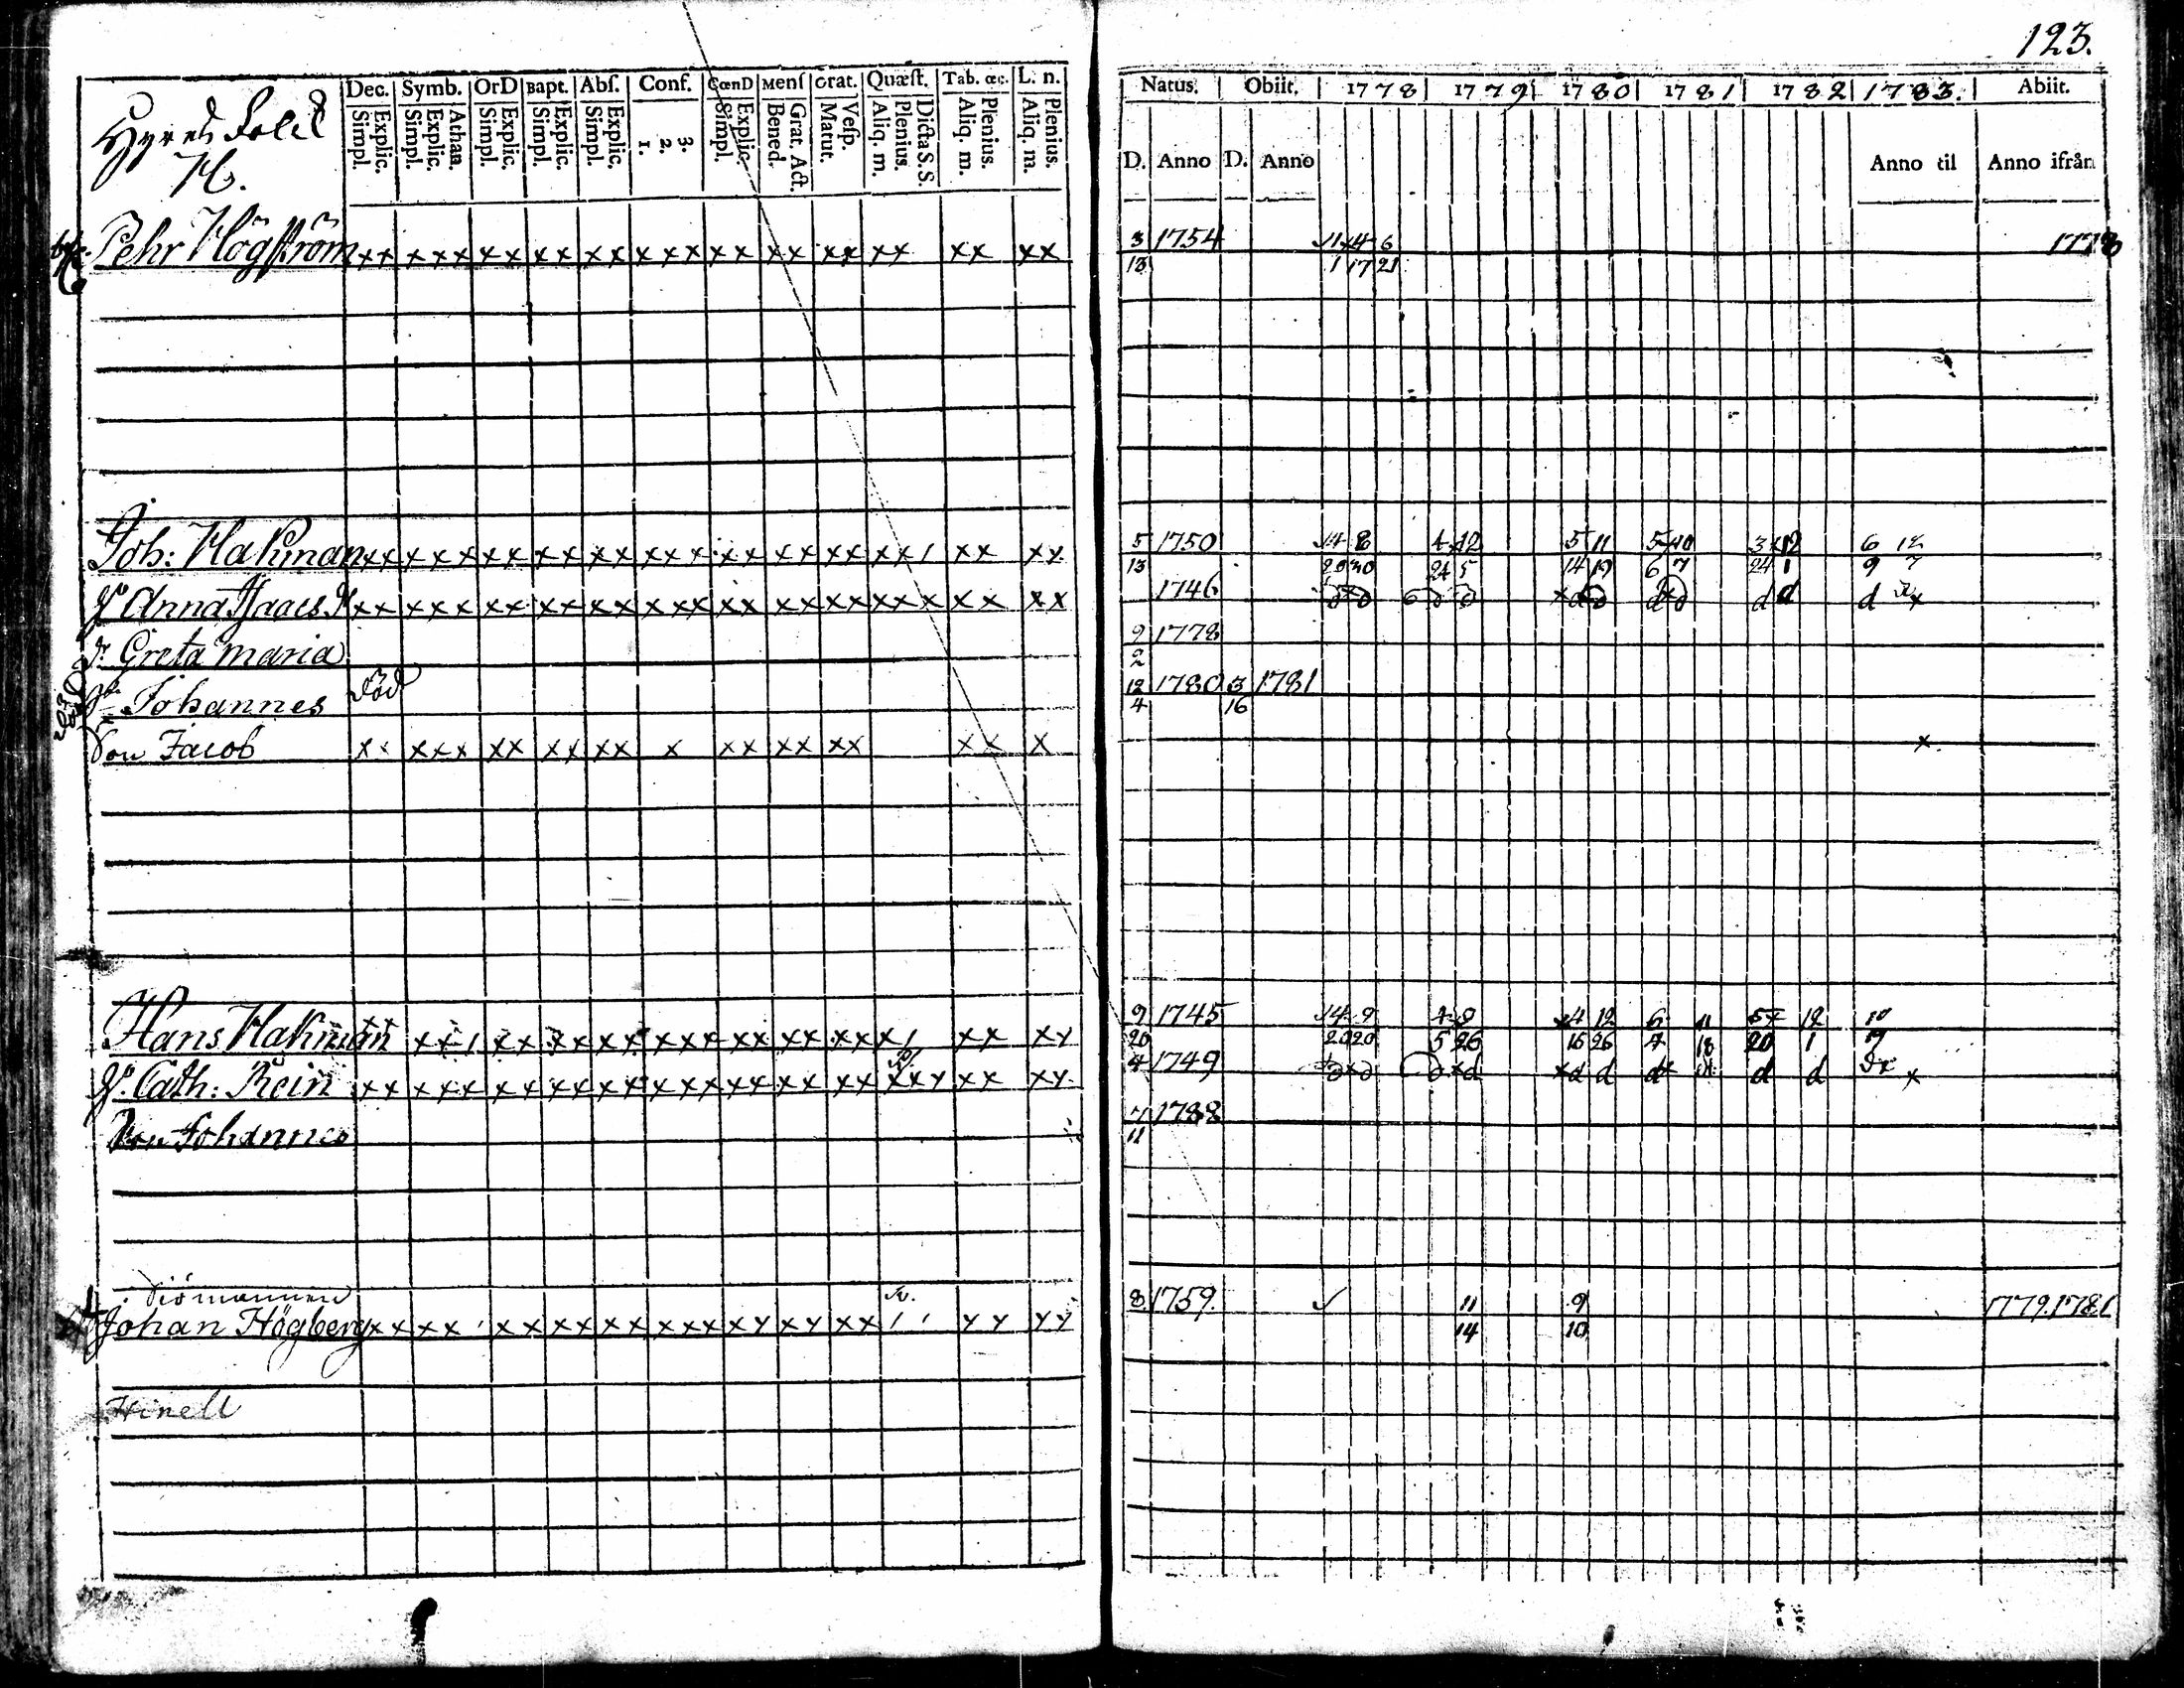 123.
Hyres Folck
H.
Dec. Symb. OrD Bapt. Abſ. Conf. CœnD Menſ Grat. Quæſt. Tab. œc. L. n.
Simpl. Explic. Simpl. Explic. Athan. Simpl. Explic. Simpl. Explic. Simpl. Explic. 1. 2. 3. Simpl. Explic. Bened. Grat. Act. Matut. Veſp. Aliq. m. Plenius. Dicta S. S. Aliq. m. Plenius. Aliq. m. Plenius.
Natus. Obiit. 1778 1779 1780 1781 1782 1783. Abiit.
D. Anno D. Anno Anno til Anno ifrån
Pehr Högström xx xxx xx xx xx xxx xx xx xx xx xx xx 3 1754 11 4 6 1778
13 1 17 21
Joh: Hakman xx xxx xx xx xx xxx xx xx xx xx1 xx xx 5 1750 14 8 4 12 5 11 5 10 3 12 6 12
13 20 30 24 5 14 19 6 7 24 1 9 7
Anna Isaacs xx xxx xx xx xx xxx xx xx xx xxx xx xx 1746 d d d d
Greta Maria 9 1778
2
Johannes död 12 1780 3 1781
4 16
Son Jacob xx xxx xx xx xx x xx xx xx xx x x
Hans Hakman xx xx1 xx xx xx xxx xx xx xx x1 xx xx 9 1745 14 9 4 9 4 12 6 11 5 12 10
20 20 20 5 26 15 26 4 18 20 1 19
Cath: Rein xx xxx xx xx xx xxx xx xx xx xxy xx xy 4 1749 d d d d d d d d x
Son Johannes 7 1788
11
Siömannen
Johan Högberg xx xx xx xx xx xxx xy xy xx yy yy 8 1759. 11 9 1779. 1781
14 10
Hinell